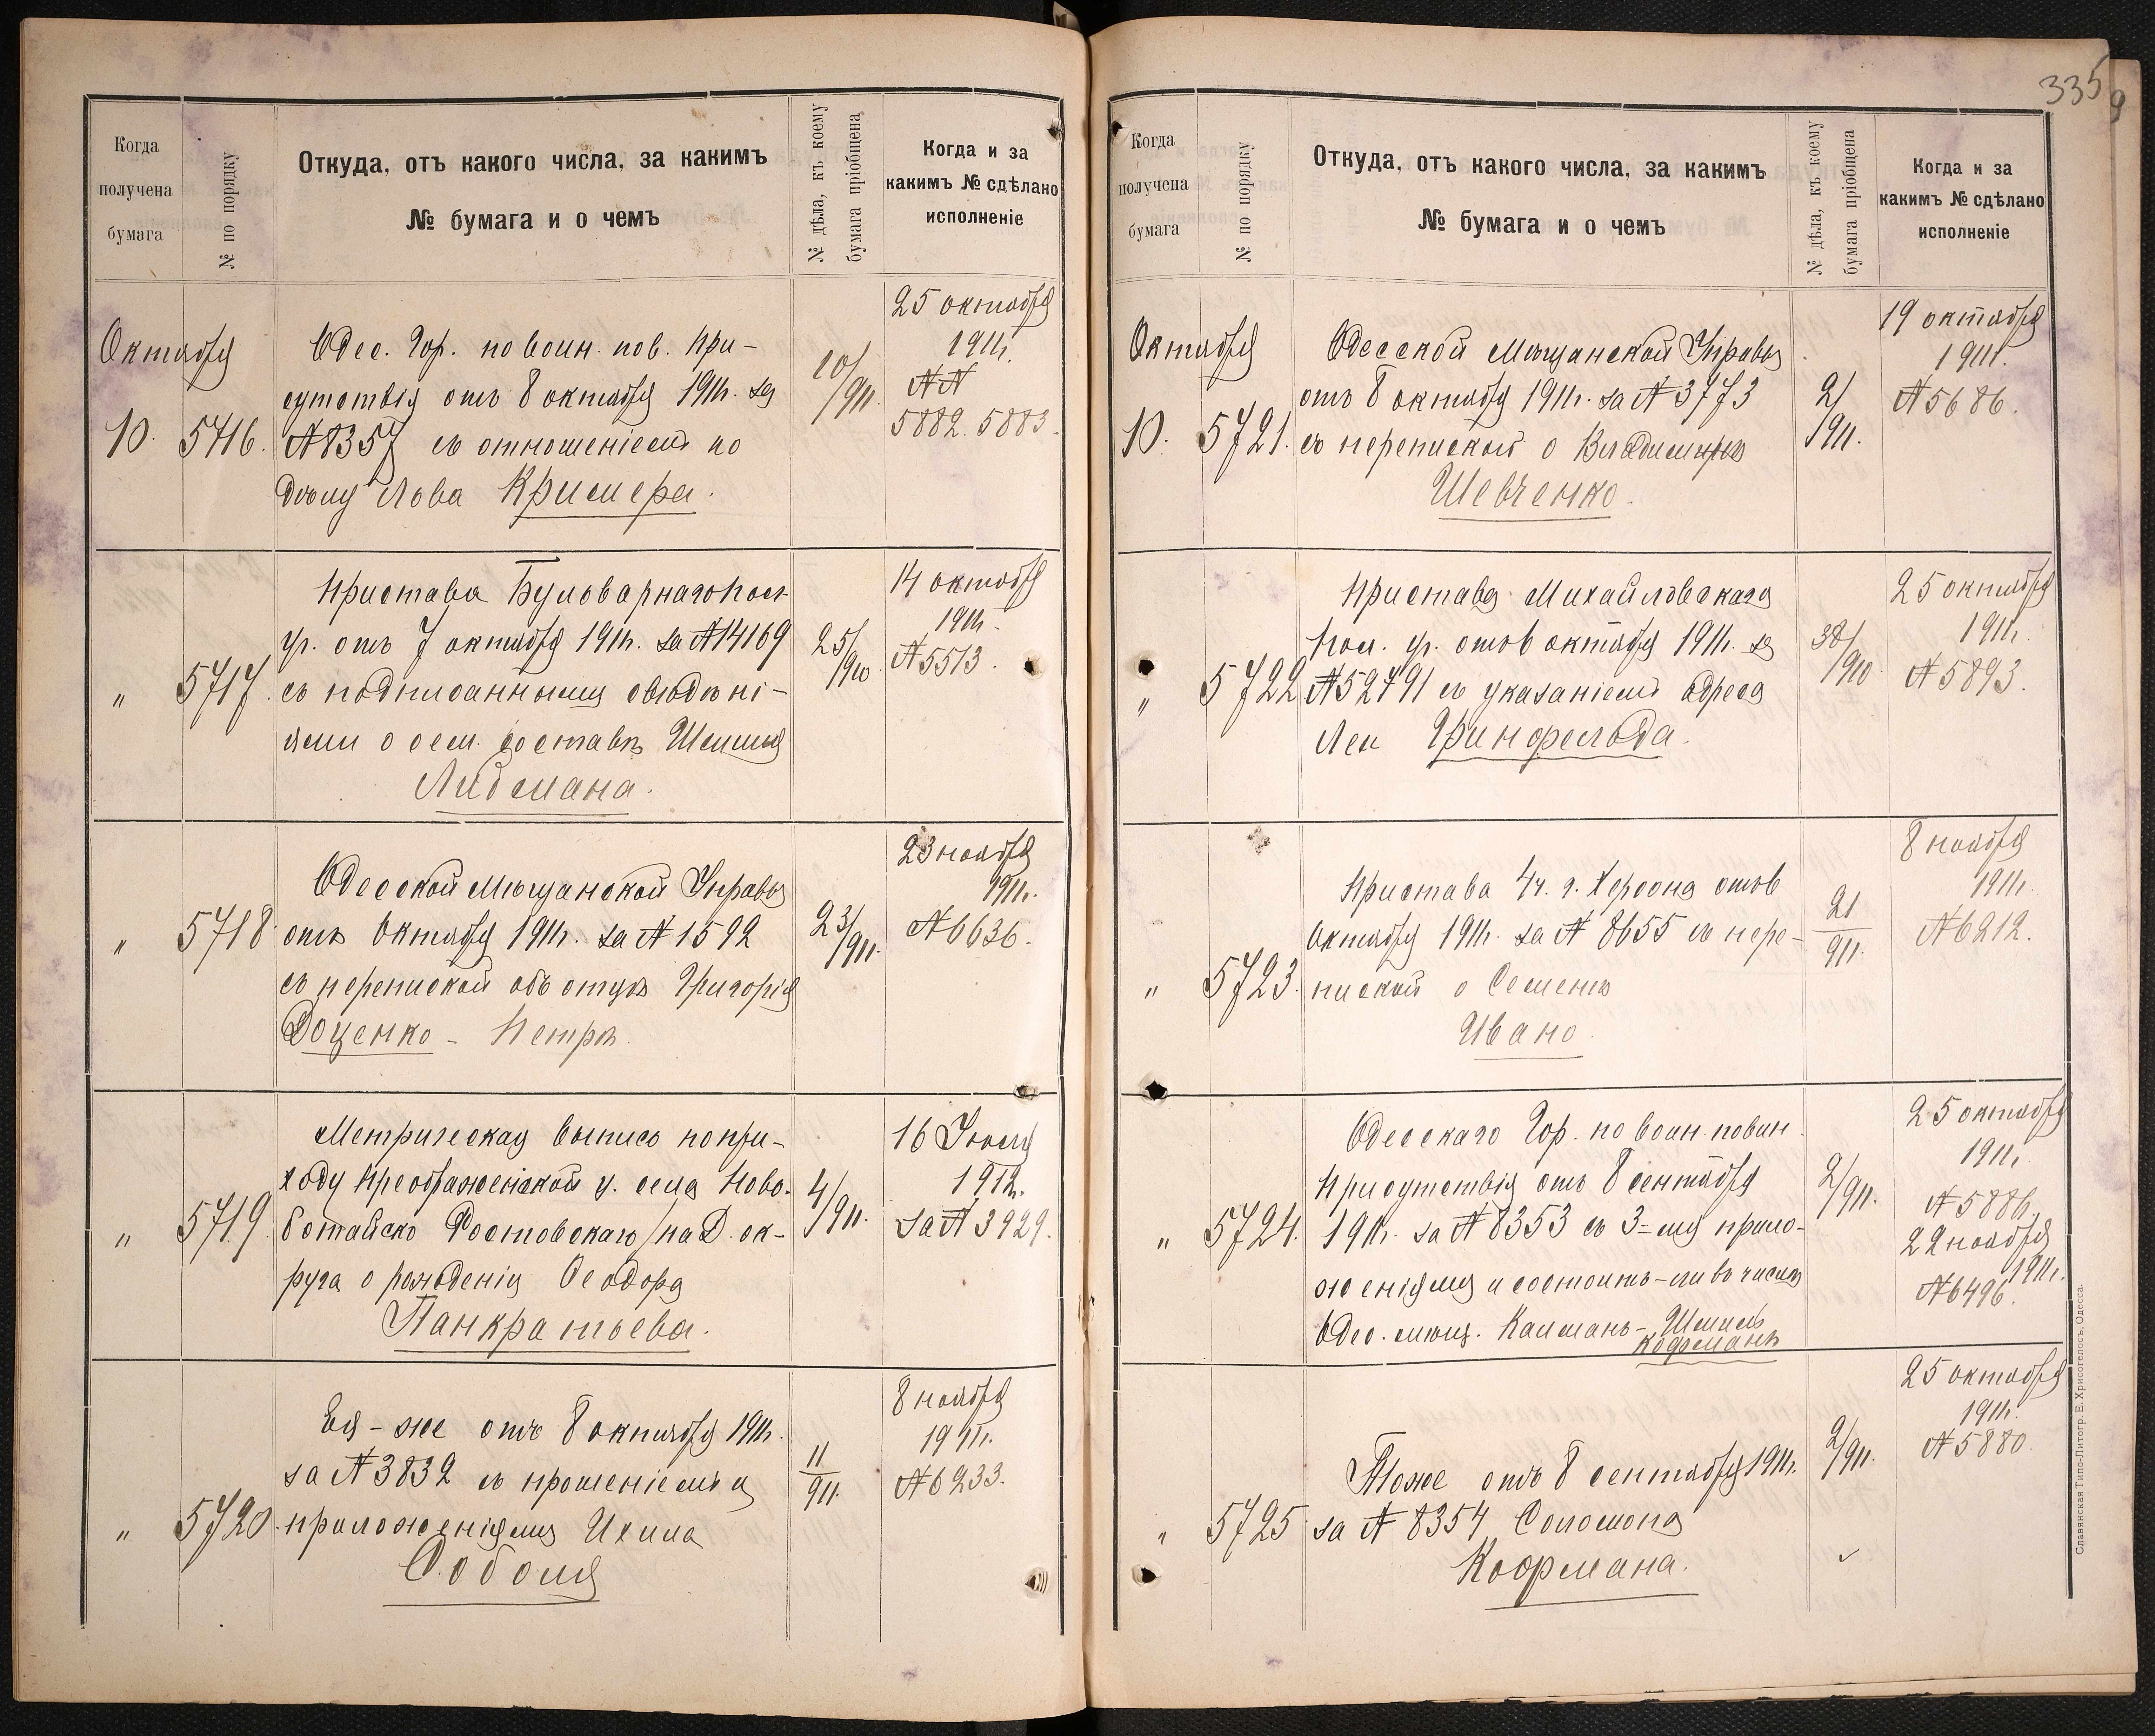 335
Когда
получена
бумага
№ по порядку
Откуда, отъ какого числа, за какимъ
№ бумага и о чемъ
№ дѣла, къ коему
бумага пріобщена
Когда и за
какимъ № сдѣлано
исполненіе
Октября
10.
5716.
Одес. Гор. по воин. пов. При-
сутствія отъ 8 октября 1911г. за
№ 8357 съ отношеніемъ по
дѣлу Лова Кримера.
10/911.
25 октября
1911г.
№№
5882. 5883.
"
5717.
Пристава Бульварнаго Пол.
уч. отъ 7 октября 1911г. за № 14169
съ подписанными свѣдѣні-
ями о сем. составѣ
Лидемана.
25/910.
14 октября
1911г.
№ 5513.
"
5718
Одесской Мѣщанской Управы
отъ октября 1911г. за № 1592
съ перепиской объ отцѣ Григорія
Доценко - Петрѣ
23/911.
23 ноября
1911г.
№ 6636.
"
5719.
Метрическая выпись по при-
ходу Преображенской ц. села Ново-
батайско Ростовскаго на Д. ок-
руга о рожденіи Ѳеодора
Панкратьева.
4/911.
16 Іюля
1912г.
за № 3929.
"
5720.
Ея-же отъ 8 октября 1911г.
за № 3832 съ прошеніемъ и
приложеніями Ихила
Соболя
11/911.
8 ноября
1911г.
№ 6233.
Когда
получена
бумага
№ по порядку
Откуда, отъ какого числа, за какимъ
№ бумага и о чемъ
№ дѣла, къ коему
бумага пріобщена
Когда и за
какимъ № сдѣлано
исполненіе
Октября
10.
5721.
Одесской Мѣщанской Управы
отъ 8 октября 1911г. за № 3773
съ перепиской о Владимирѣ
Шевченко.
2/911.
19 октября
1911г.
№ 5686.
"
5722
Пристава Михайловскаго
Пол. уч. отъ 6 октября 1911г. за
№ 52791 съ указаніемъ адреса
Леи Гринфельда.
38/910.
25 октября
1911г.
№ 5893.
"
5723.
Пристава 4ч. г. Херсона отъ 6
октября 1911г. за № 8655 съ пере-
пиской о Семенѣ
Ивано
21/911.
8 ноября
1911г.
№ 6212.
"
5724.
Одесскаго Гор. по воин. повин.
Присутствія отъ 8 сентября
1911г. за № 8353 съ 3-мя прило-
женіями и состоитъ-ли въ числѣ
Одес. мѣщ. Калманъ-Шмиль
Кофманъ
2/911.
25 октября
1911г.
№ 5886.
22 ноября
1911г.
№ 6496.
"
5725
Тоже отъ 8 сентября 1911г.
за № 8354 Соломона
Кофмана.
2/911.
25 октября
1911г.
№ 5880
Славянская Типо-Литогр. Е. Хрисогелосъ, Одесса.